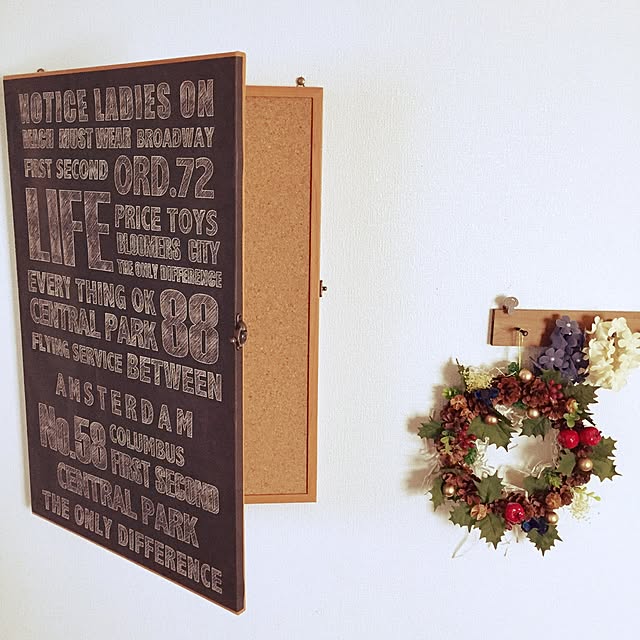 NOTICE LADIES ON
BEACH MUST WEAR BROADWAY
FIRST SECOND ORD.72
LIFE
PRICE TOYS
BLOOMERS CITY
THE ONLY DIFFERENCE
EVERY THING OK
CENTRAL PARK 88
FLYING SERVICE BETWEEN
AMSTERDAM
No.58 COLUMBUS
FIRST SECOND
CENTRAL PARK
THE ONLY DIFFERENCE